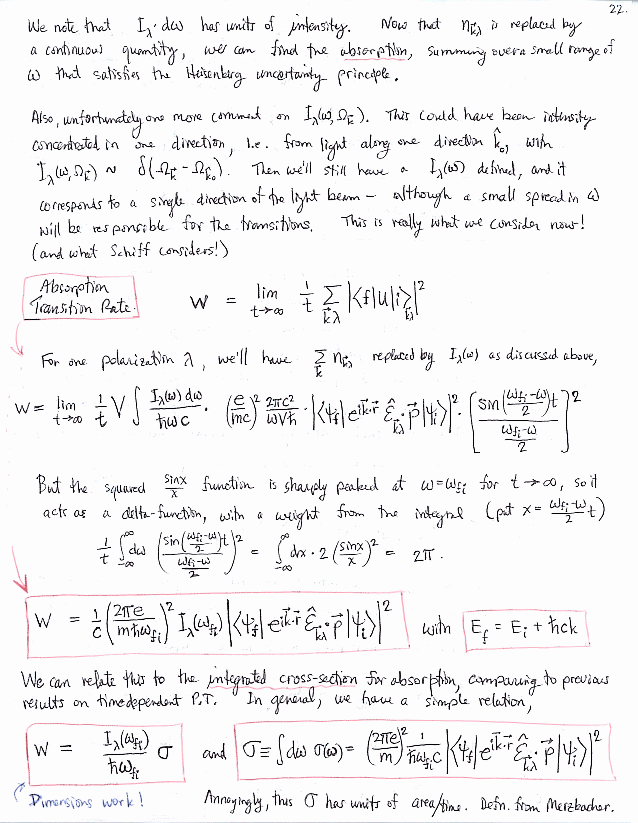 22.
We note that I_λ·dω has units of intensity. Now that n_k⃗λ is replaced by
a continuous quantity, we can find the absorption, summing over a small range of
ω that satisfies the Heisenberg uncertainty principle.
Also, unfortunately one more comment on I_λ(ω,Ω_k⃗). This could have been intensity
concentrated in one direction, i.e. from light along one direction k̂₀, with
I_λ(ω,Ω_k⃗) ~ δ(Ω_k⃗ - Ω_k⃗₀). Then we'll still have a I_λ(ω) defined, and it
corresponds to a single direction of the light beam — although a small spread in ω
will be responsible for the transitions. This is really what we consider now!
(and what Schiff considers!)
Absorption
Transition Rate.
W = lim_{t→∞} 1/t Σ_{k⃗λ} |<f|U|i>|²
For one polarization λ, we'll have Σ_k⃗ n_k⃗λ replaced by I_λ(ω) as discussed above,
W = lim_{t→∞} 1/t V ∫ I_λ(ω)dω/ħωc · (e/mc)² 2πc²/ωVħ · |<ψ_f|e^{ik⃗·r⃗} ε̂_k⃗λ·p⃗|ψ_i>|² · [sin((ω_fi-ω)/2)t / ((ω_fi-ω)/2)]²
But the squared sinx/x function is sharply peaked at ω=ω_fi for t→∞, so it
acts as a delta-function, with a weight from the integral (put x = (ω_fi-ω)/2 t)
1/t ∫_{-∞}^{∞} dω (sin((ω_fi-ω)/2)t / ((ω_fi-ω)/2))² = ∫_{-∞}^{∞} dx·2 (sinx/x)² = 2π.
W = 1/c (2πe/mħω_fi)² I_λ(ω_fi) |<ψ_f|e^{ik⃗·r⃗} ε̂_k⃗λ·p⃗|ψ_i>|² with E_f = E_i + ħck
We can relate this to the integrated cross-section for absorption, comparing to previous
results on time dependent P.T. In general, we have a simple relation,
W = I_λ(ω_fi)/ħω_fi σ and σ ≡ ∫dω σ(ω) = (2πe/m)² 1/ħω_fi c |<ψ_f|e^{ik⃗·r⃗} ε̂_k⃗λ·p⃗|ψ_i>|²
Dimensions work! Annoyingly, this σ has units of area/time. Defn. from Merzbacher.